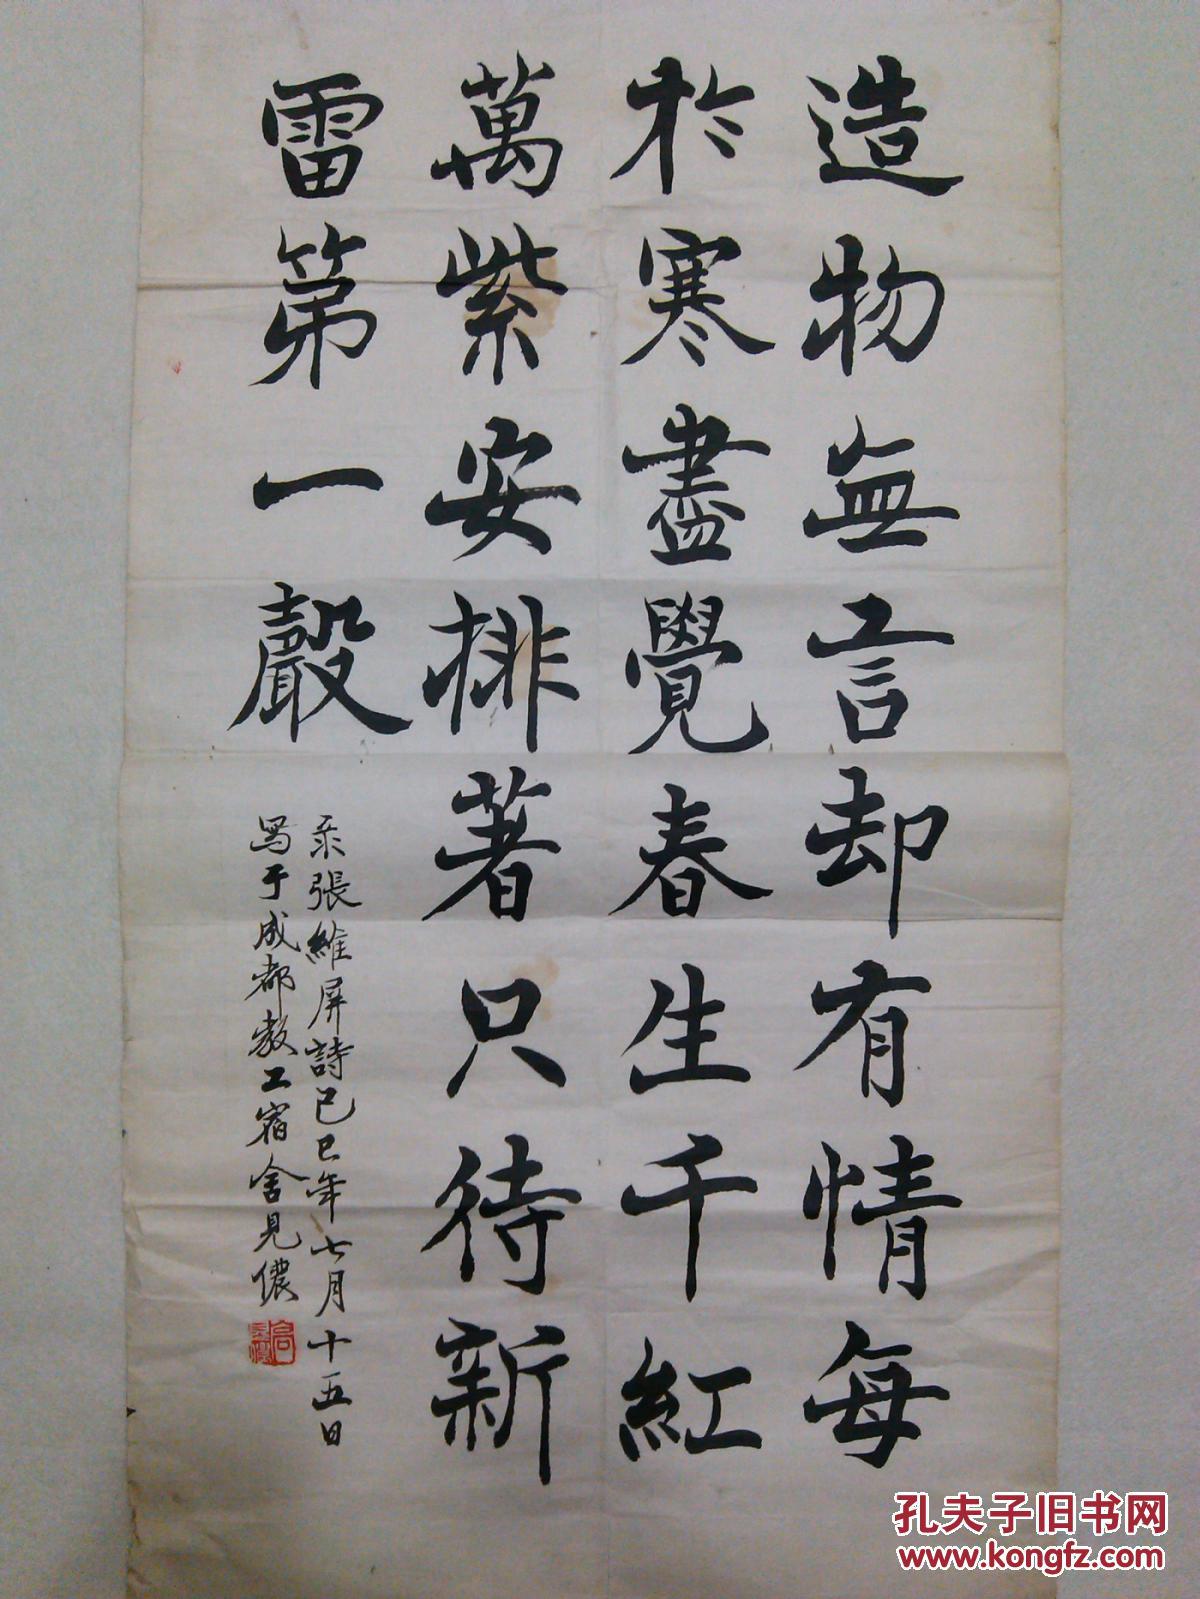 造物無言却有情每
於寒盡覺春生千紅
萬紫安排著只待新
雷第一聲
張維屏詩己巳年七月十五日
写于成都教工宿舍見儂
孔夫子旧书网
www.kongfz.com